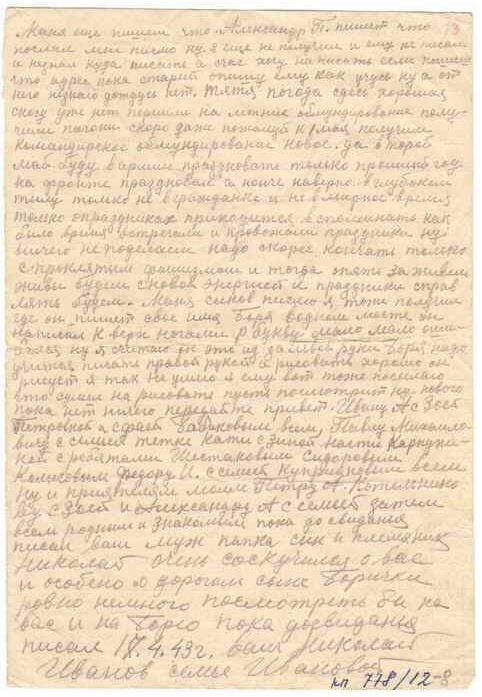 13
Маня еще пишеш что Александр П. пишет что
послал мне писмо ну я еще не получил и ему не писал
и незнал куда писать а счас хочу написать если пишет
что адрес пока старей опишу ему как учусь ну а от
него незнаю дождусь нет. Тятя погода здесь хорошая
снегу уже нет перешли на летнее обмундирование полу-
чили погони скоро даже пожалуй к 1/мая получим
командирское обмундирование новое. да второй
май буду в армии праздновать только прошлый год
на фронте праздновал а нонче наверно в глубоком
тылу только не в гражданке и не в мирное время
только о праздниках приходится вспоминать как
было время встречали и провожали праздники ну
ничего не поделаеш надо скорее кончать только
с проклятым фашизмом и тогда опять заживем
живы будем с новой энергией и праздники справ
лять будем. Маня синов писмо я тоже получил
где он пишет свое имя Боря в одном месте он
написал к верх ногами р а букву мало мало оши-
бился ну я считаю он это из за левой руки Боря надо
учится писать правой рукой а рисовать хорошо он
рисует я так не умею я ему вот тоже посылаю
что сумел на рисовать пусть посмотрит ну нового
пока нет ничего передайте привет. Ивану А с Зоей
Петровной и сфате всем, Павлу Михайло-
вичу с семьей тетке Кати с Зиной Насти
ней с ребятами Шестаковым Сидоровым
Федору И. с семьей Куприяновым всем
ну и приятелям моим Петру А. Котельнико
ву с Зоей и Александру А с семьей затем
всем родным и знакомым пока до свидания
писал ваш муж папка син и племяник
Николай очень соскучился о вас
и особено о дорогом сыне Борички
ровно немного посмотреть бы на
вас и на Борю пока досвидания
писал 4.43г. ваш Николай
Иванов семье Ивановой
кп 778/12-8